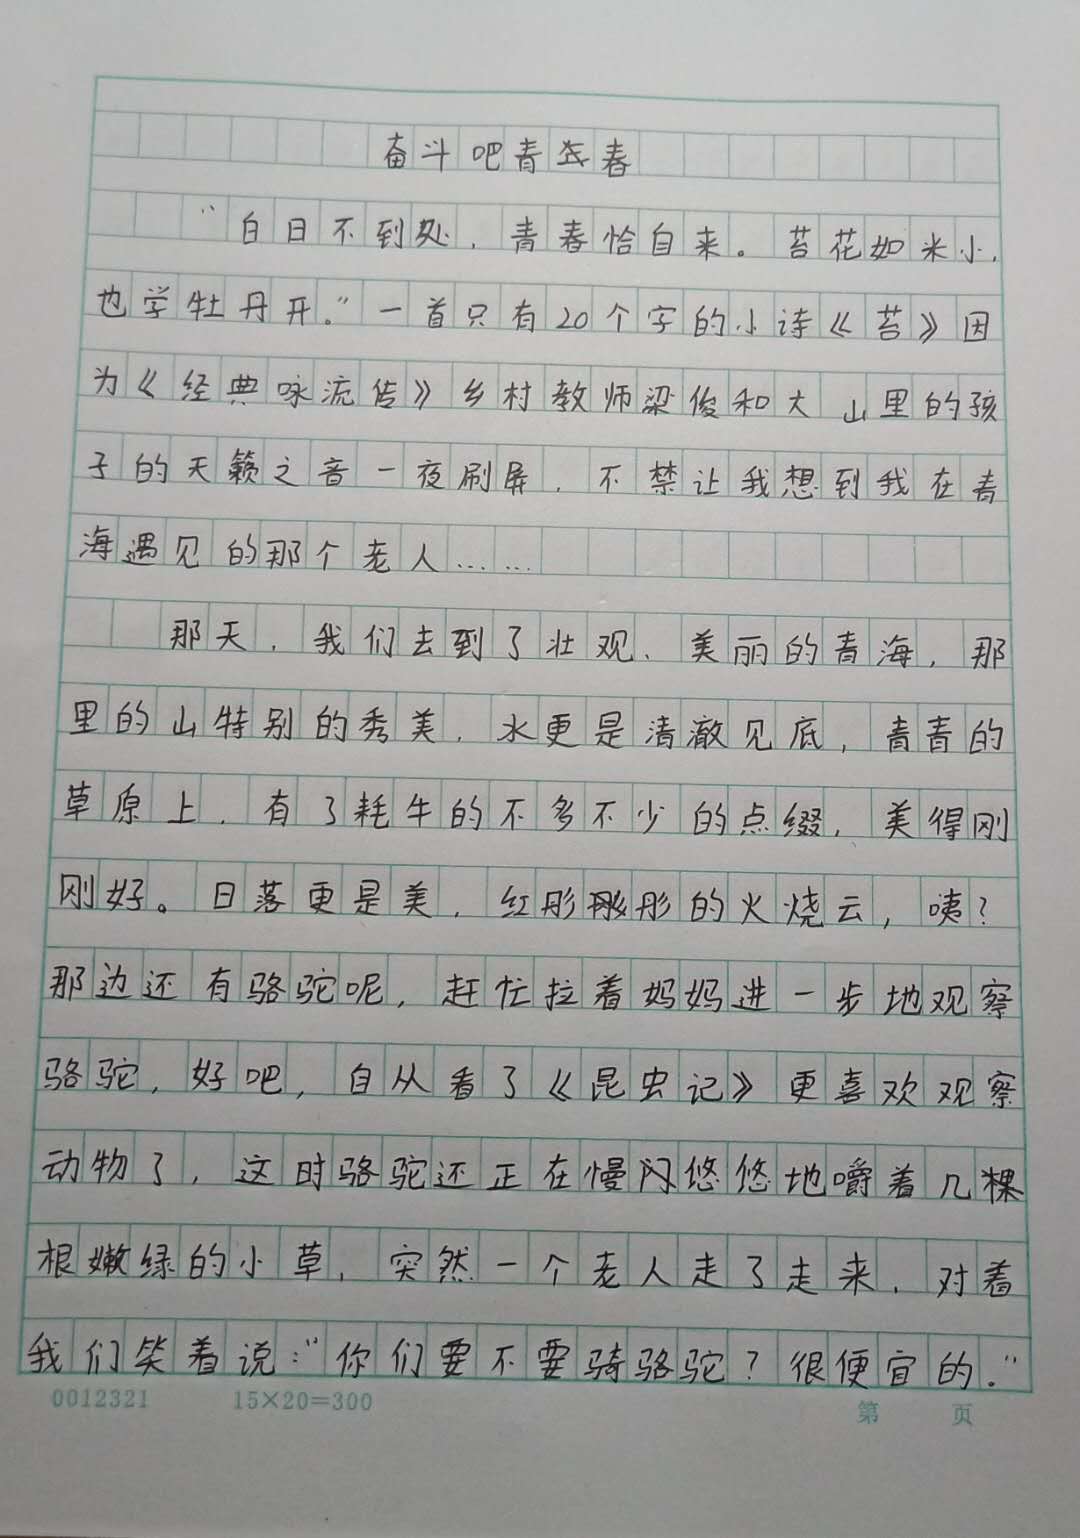 奋斗吧青春
“白日不到处，青春恰自来。苔花如米小，
也学牡丹开。”一首只有20个字的小诗《苔》因
为《经典咏流传》乡村教师梁俊和大山里的孩
子的天籁之音一夜刷屏，不禁让我想到我在青
海遇见的那个老人……
那天，我们去到了壮观、美丽的青海，那
里的山特别的秀美，水更是清澈见底，青青的
草原上，有了耗牛的不多不少的点缀，美得刚
刚好。日落更是美，红彤彤的火烧云，咦？
那边还有骆驼呢，赶忙拉着妈妈进一步地观察
骆驼，好吧，自从看了《昆虫记》更喜欢观察
动物了，这时骆驼还正在慢闪悠悠地嚼着几棵
根嫩绿的小草，突然一个老人走了走来，对着
我们笑着说：“你们要不要骑骆驼？很便宜的。”
0012321 15×20=300 第 页